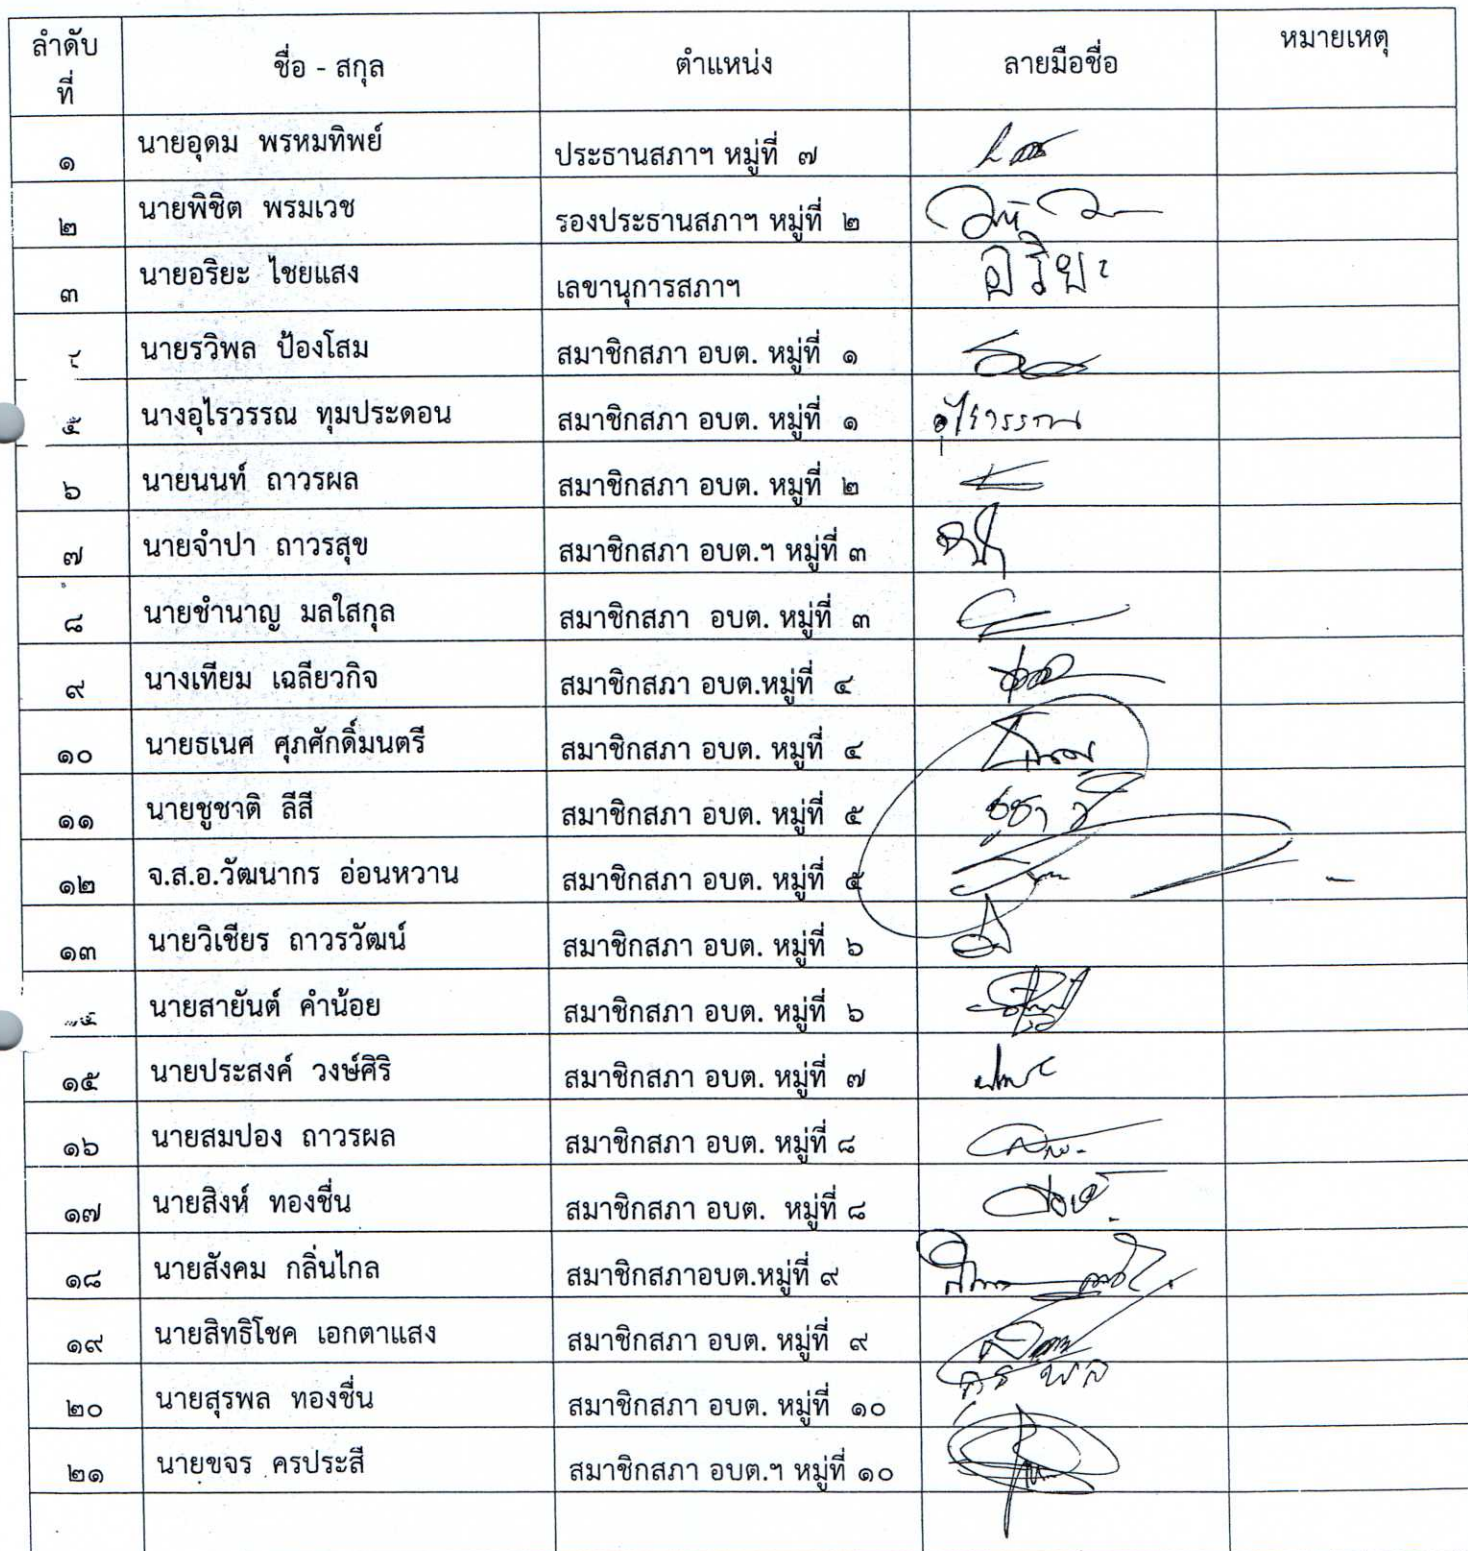 ลำดับที่ ชื่อ - สกุล ตำแหน่ง ลายมือชื่อ หมายเหตุ
๑ นายอุดม พรหมทิพย์ ประธานสภาฯ หมู่ที่ ๗
๒ นายพิชิต พรมเวช รองประธานสภาฯ หมู่ที่ ๒
๓ นายอริยะ ไชยแสง เลขานุการสภาฯ อริยะ
นายรวิพล ป้องโสม สมาชิกสภา อบต. หมู่ที่ ๑
๕ นางอุไรวรรณ ทุมประดอน สมาชิกสภา อบต. หมู่ที่ ๑ อุไรวรรณ
๖ นายนนท์ ถาวรผล สมาชิกสภา อบต. หมู่ที่ ๒
๗ นายจำปา ถาวรสุข สมาชิกสภา อบต.ฯ หมู่ที่ ๓
๘ นายชำนาญ มลใสกุล สมาชิกสภา อบต. หมู่ที่ ๓
๙ นางเทียม เฉลียวกิจ สมาชิกสภา อบต.หมู่ที่ ๔
๑๐ นายธเนศ ศุภศักดิ์มนตรี สมาชิกสภา อบต. หมู่ที่ ๔
๑๑ นายชูชาติ ลีสี สมาชิกสภา อบต. หมู่ที่ ๕
๑๒ จ.ส.อ.วัฒนากร อ่อนหวาน สมาชิกสภา อบต. หมู่ที่ ๕
๑๓ นายวิเชียร ถาวรวัฒน์ สมาชิกสภา อบต. หมู่ที่ ๖
นายสายันต์ คำน้อย สมาชิกสภา อบต. หมู่ที่ ๖
๑๕ นายประสงค์ วงษ์ศิริ สมาชิกสภา อบต. หมู่ที่ ๗
๑๖ นายสมปอง ถาวรผล สมาชิกสภา อบต. หมู่ที่ ๘
๑๗ นายสิงห์ ทองชื่น สมาชิกสภา อบต. หมู่ที่ ๘
๑๘ นายสังคม กลิ่นไกล สมาชิกสภาอบต.หมู่ที่ ๙
๑๙ นายสิทธิโชค เอกตาแสง สมาชิกสภา อบต. หมู่ที่ ๙
๒๐ นายสุรพล ทองชื่น สมาชิกสภา อบต. หมู่ที่ ๑๐
๒๑ นายขจร ครประสี สมาชิกสภา อบต.ฯ หมู่ที่ ๑๐